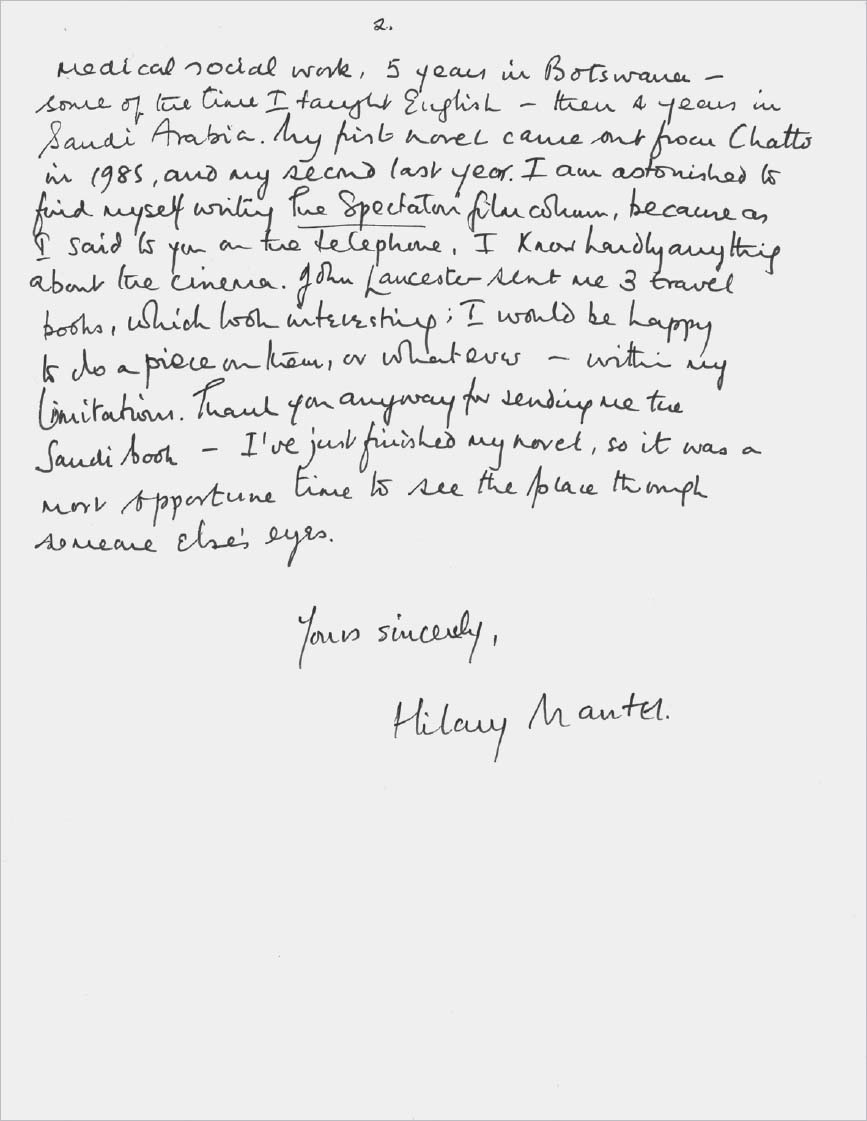 2.
Medical social work, 5 years in Botswana –
some of the time I taught English – then 4 years in
Saudi Arabia. My first novel came out from Chatto
in 1985, and my second last year. I am astonished to
find myself writing The Spectator's film column, because as
I said to you on the telephone, I know hardly anything
about the cinema. John Lancester sent me 3 travel
books, which look interesting; I would be happy
to do a piece on them, or whatever – within my
limitations. Thank you anyway for sending me the
Saudi book – I've just finished my novel, so it was a
most opportune time to see the place through
someone else's eyes.
Yours sincerely,
Hilary Mantel.